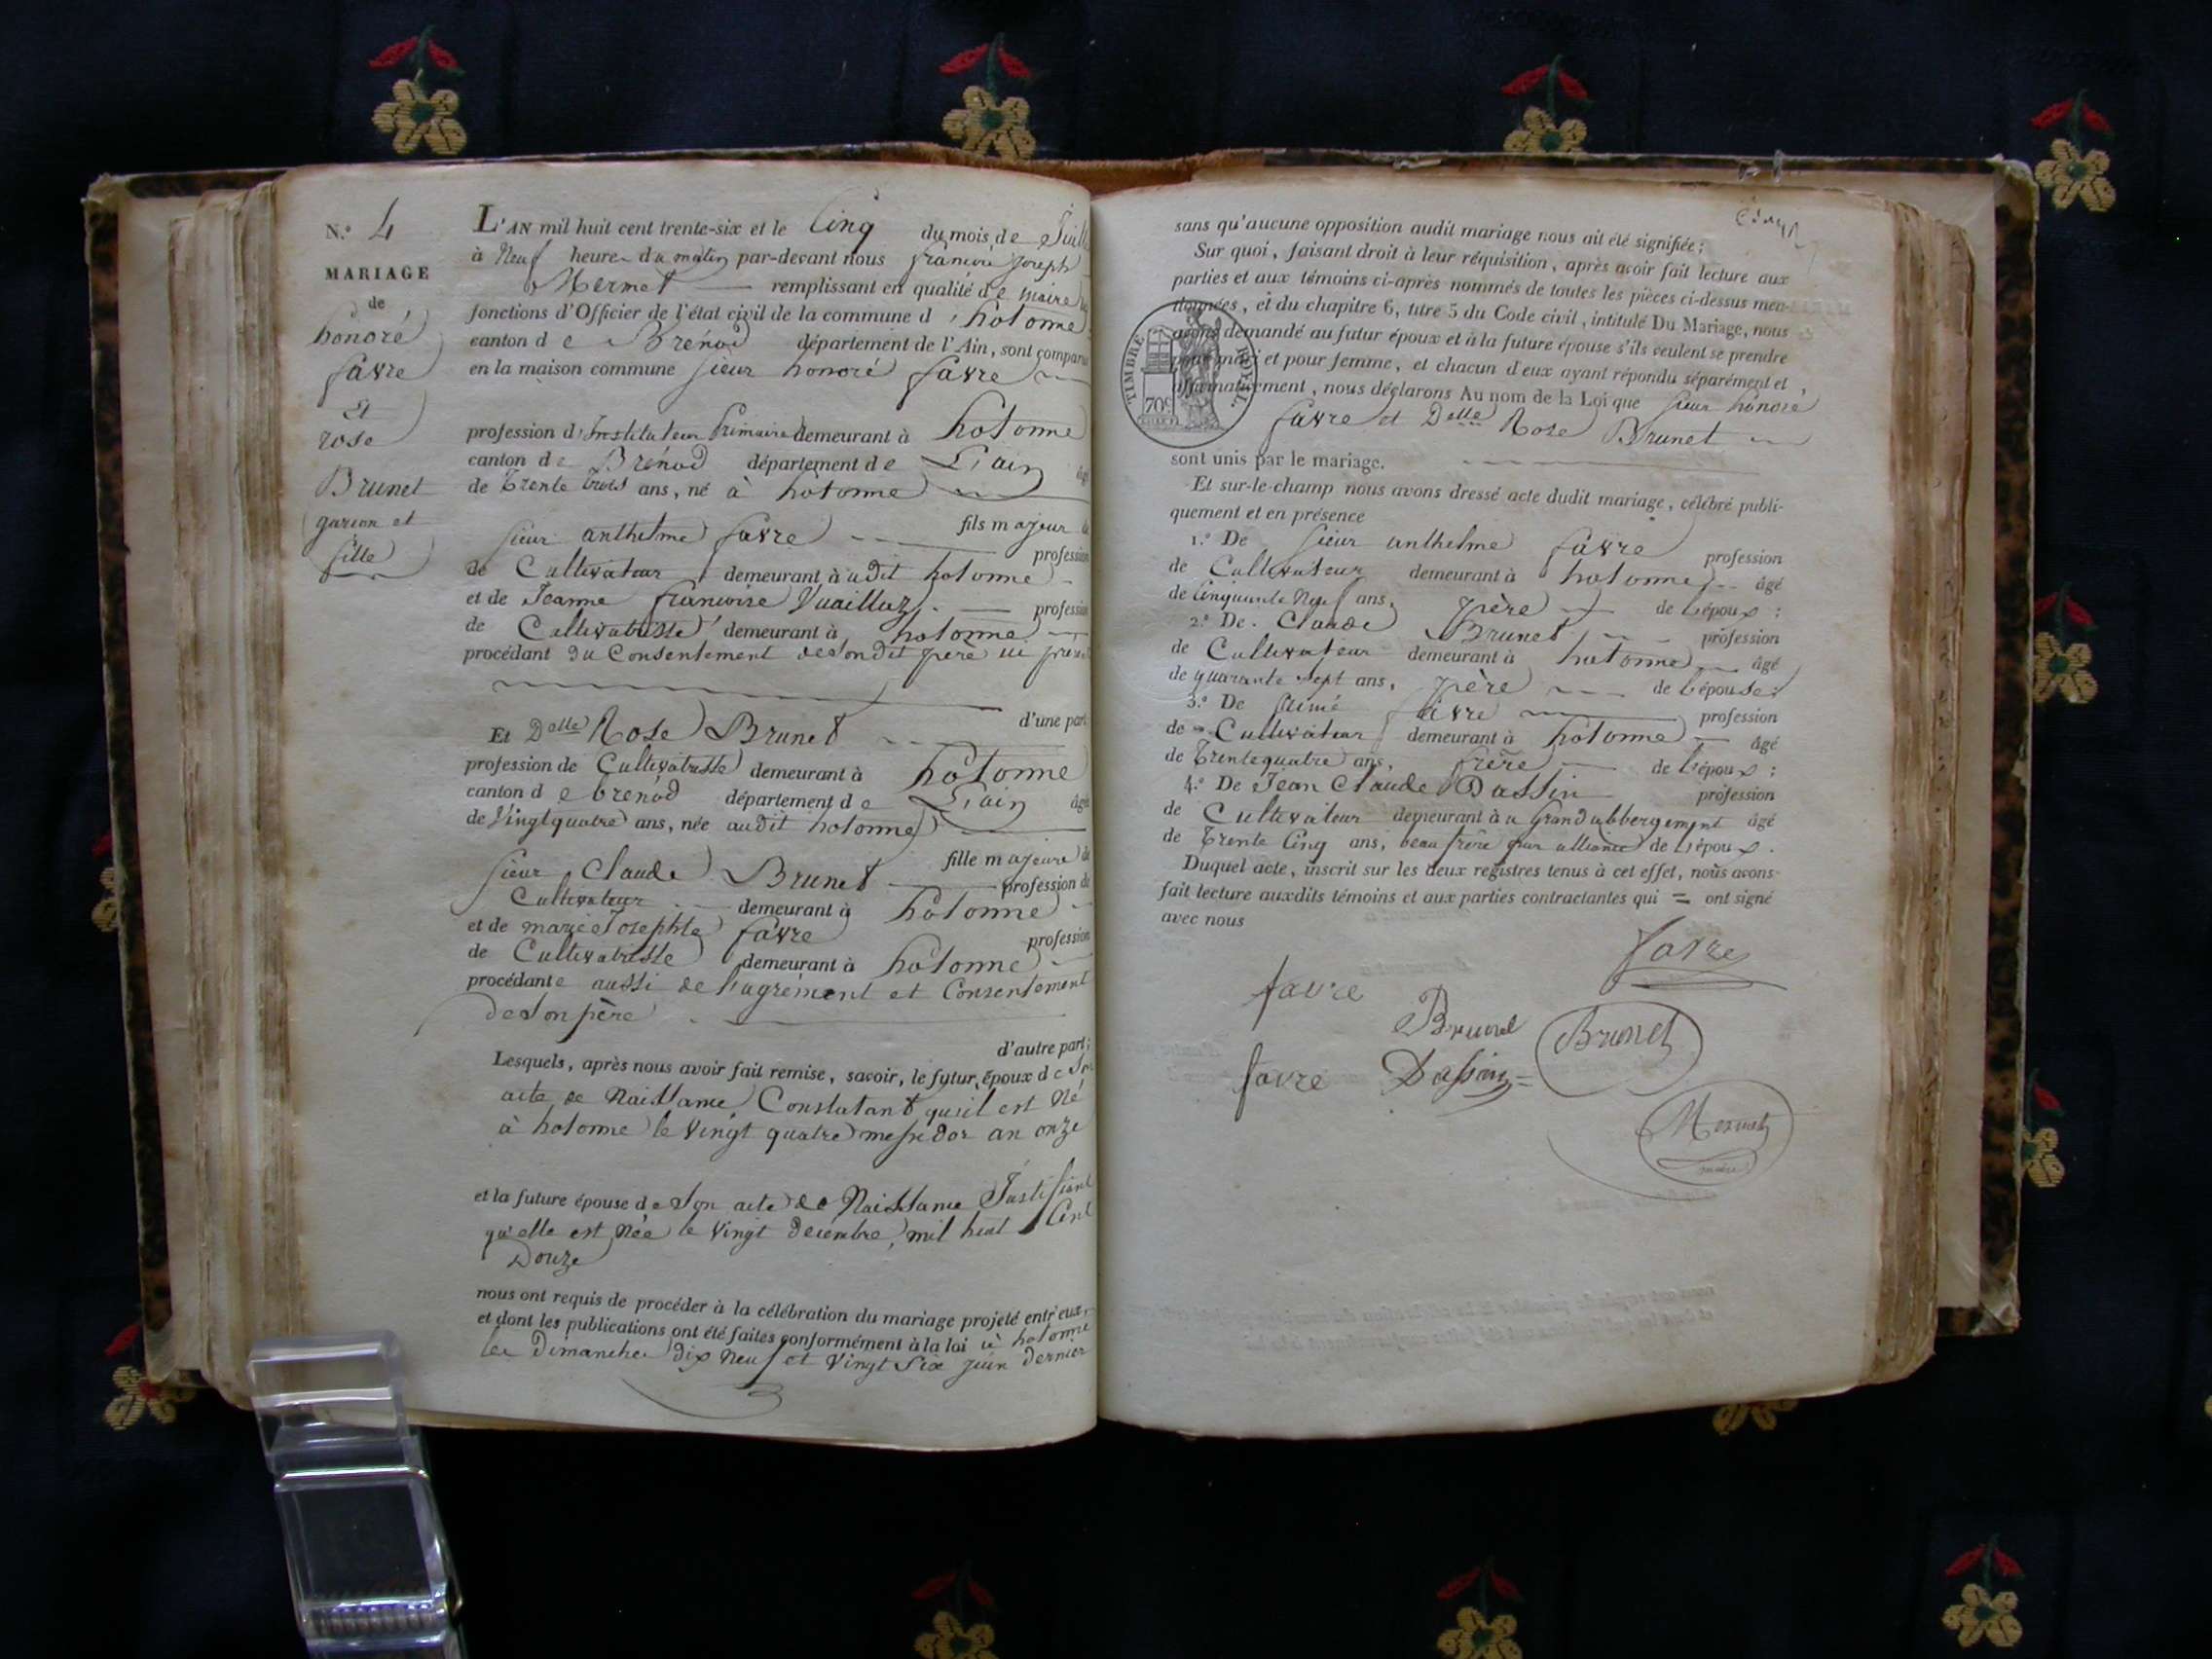 N.º 4
MARIAGE
de
honoré
favre
Et
rose
Brunet
garcon et
fille
L'AN mil huit cent trente-six et le Cinq du mois de Juill
à Neuf heures du matin par-devant nous francois joseph
Mermet remplissant en qualité de maire les
fonctions d'Officier de l'état civil de la commune d'hotonne
canton de Brénod département de l'Ain, sont comparus
en la maison commune sieur honoré favre
profession d'Instituteur Primaire demeurant à hotonne
canton de Brénod département de L'ain âgé
de Trente trois ans, né à hotonne
fils majeur de
sieur anthelme favre profession
de Cultivateur demeurant à udit hotonne
et de Jeanne francoise Vuaillaz profession
de Cultivatrisse demeurant à hotonne
procédant du Consentement de son dit père ici présent
d'une part
Et Delle Rose Brunet
profession de Cultivatrisse demeurant à hotonne
canton de brenod département de L'ain âgée
de Vingt quatre ans, née audit hotonne
fille majeure de
sieur Claude Brunet profession de
Cultivateur demeurant à hotonne
et de marie Josephte favre profession
de Cultivatrisse demeurant à hotonne
procédante aussi de l'agrément et Consentement
de son père
d'autre part;
Lesquels, après nous avoir fait remise, savoir, le futur époux de Son
acte de Naissance Constatant qu'il est Né
à hotonne le Vingt quatre messidor an onze
et la future épouse de Son acte de Naissance Justifiant
qu'elle est Née le Vingt decembre mil huit Cent
Douze
nous ont requis de procéder à la célébration du mariage projeté entr'eux,
et dont les publications ont été faites conformément à la loi à hotonne
les Dimanches dix Neuf et Vingt Six juin dernier
sans qu'aucune opposition audit mariage nous ait été signifiée;
Sur quoi, faisant droit à leur réquisition, après avoir fait lecture aux
parties et aux témoins ci-après nommés de toutes les pièces ci-dessus men-
tionnées, et du chapitre 6, titre 5 du Code civil, intitulé Du Mariage, nous
avons demandé au futur époux et à la future épouse s'ils veulent se prendre
pour mari et pour femme, et chacun d'eux ayant répondu séparément et
affirmativement, nous déclarons Au nom de la Loi que sieur honoré
favre et Delle Rose Brunet
sont unis par le mariage.
TIMBRE ROYAL
70c
Et sur-le-champ nous avons dressé acte dudit mariage, célébré publi-
quement et en présence
1.º De sieur anthelme favre profession
de Cultivateur demeurant à hotonne âgé
de Cinquante Neuf ans, père de l'époux;
2.º De Claude Brunet profession
de Cultivateur demeurant à hotonne âgé
de quarante sept ans, père de l'épouse;
3.º De favre profession
de Cultivateur demeurant à hotonne âgé
de Trente quatre ans, frère de l'époux;
4.º De Jean Claude Dassin profession
de Cultivateur demeurant à u Grand abbergement âgé
de Trente Cinq ans, beau frère par alliance de l'époux.
Duquel acte, inscrit sur les deux registres tenus à cet effet, nous avons
fait lecture auxdits témoins et aux parties contractantes qui = ont signé
avec nous
favre
favre
Brunet
Brunet
favre
Dassin
Mermet
maire